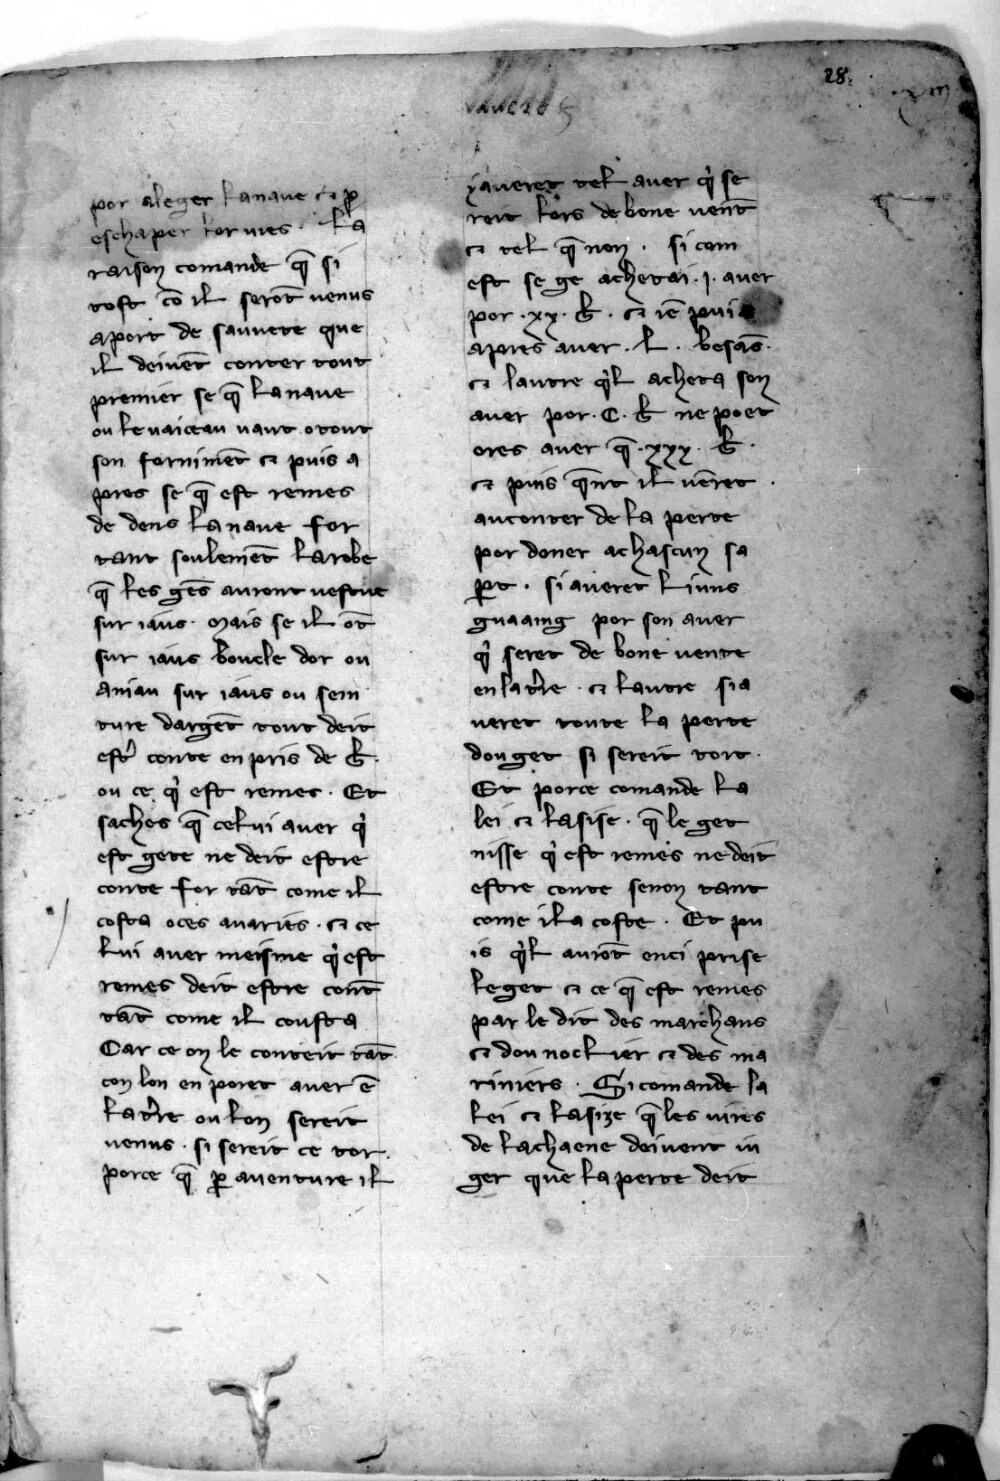 28
por aleger la naue ⁊ ꝑ
eschaper lor uies · La
raison comande q̄ si
tost cō il serōt uenus
a port de sauuete que
il deiuēt conter tout
premier se q̄ la naue
ou le uaiceau uaut o tout
son fornimēt ⁊ puis a
pres se q̄ est remes
de dens la naue for
tant soulemēt la robe
q̄ les gēs auront uestue
sur iaus · Mais se il ōt
sur iaus boucle dor ou
aniau sur iaus ou sein
ture dargēt tout deit
estr̄ conte en pris de b̄ ·
ou ce q̇ est remes · Et
saches q̄ celui auer q̇
est gete ne deit estre
conte for tāt come il
costa o ces auaries · ⁊ ce
lui auer meisme q̇ est
remes deit estre cōnt
tāt come il cousta
Car ce on le conteit tāt
con lon en poret auer ē
la tr̄re ou lon sereit
uenus · si sereit ce tor ·
por ce q̄ ꝑ auenture il
y aueret tel auer q̇ se
reit lors de bone uent̄
⁊ tel q̄ non · si com
est se ge achetai · j · auer
por · xx · b̄ · ⁊ iē puis
apres auer · L · besās ·
⁊ lautre q̇l acheta son
auer por · C · b̄ ne poet
ores auer q̄ · xxx · b̄ ·
⁊ puis q̄nt il uēret
au conter de la perte
por doner a chascun sa
ꝑt · si aueret li uns
guaaing por son auer
q̇ seret de bone uente
en la tr̄re · ⁊ lautre si a
ueret toute la perte
dou get si sereit tort ·
Et por ce comande la
lei ⁊ lasise · q̄ le get
nisse q̇ est remes ne deit
estre conte senon tant
come il a coste · Et pu
is q̇l aurōt enci prise
le get ⁊ ce q̄ est remes
par le dit des marchans
⁊ dou noclier ⁊ des ma
riniers · Si comande la
lei ⁊ lasize q̄ les iures
de la chaene deiuent iu
ger que la perte deit